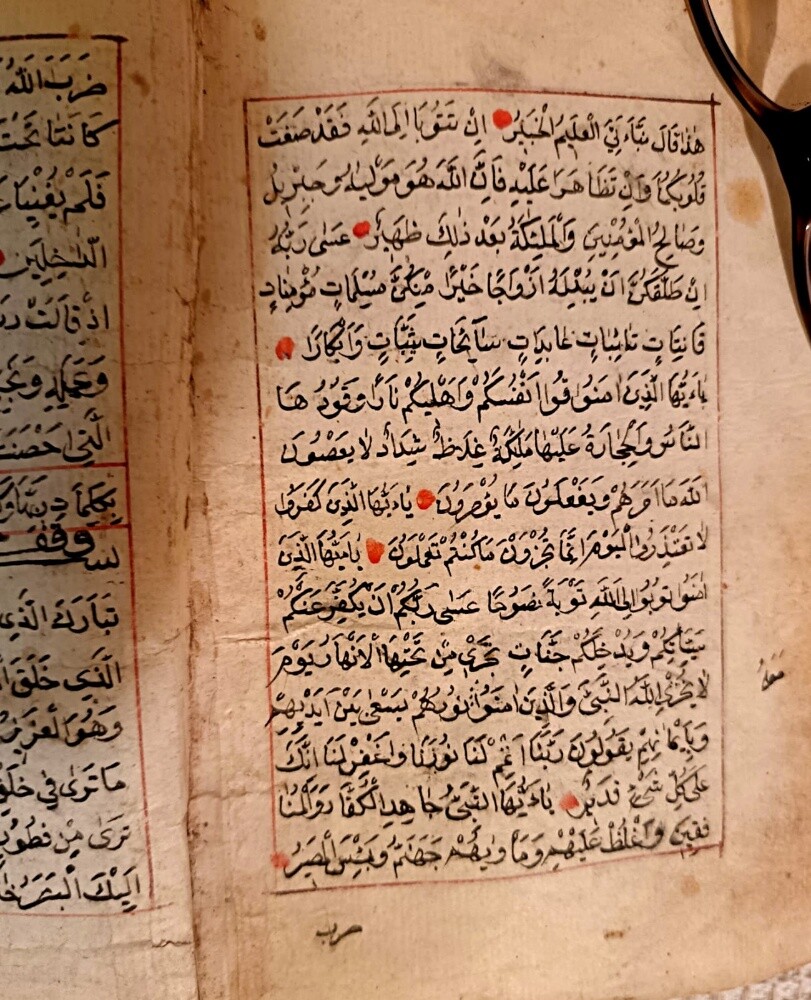 هذا قَالَ نَبَّاَنِيَ الْعَلِيمُ الْخَبِيرُ اِنْ تَتُوبَا اِلَى اللّٰهِ فَقَدْ صَغَتْ
قُلُوبُكُمَا وَاِنْ تَظَاهَرَا عَلَيْهِ فَاِنَّ اللّٰهَ هُوَ مَوْلٰيهُ وَجِبْرِيلُ
وَصَالِحُ الْمُؤْمِنِينَ وَالْمَلٰئِكَةُ بَعْدَ ذٰلِكَ ظَهِيرٌ عَسٰى رَبُّهُ
اِنْ طَلَّقَكُنَّ اَنْ يُبْدِلَهُ اَزْوَاجًا خَيْرًا مِنْكُنَّ مُسْلِمَاتٍ مُؤْمِنَاتٍ
قَانِتَاتٍ تَائِبَاتٍ عَابِدَاتٍ سَآئِحَاتٍ ثَيِّبَاتٍ وَاَبْكَارًا
يٰاَيُّهَا الَّذِينَ اٰمَنُوا قُوا اَنْفُسَكُمْ وَاَهْلِيكُمْ نَارًا وَقُودُهَا
النَّاسُ وَالْحِجَارَةُ عَلَيْهَا مَلٰئِكَةٌ غِلَاظٌ شِدَادٌ لَا يَعْصُونَ
اللّٰهَ مَا اَمَرَهُمْ وَيَفْعَلُونَ مَا يُؤْمَرُونَ يٰاَيُّهَا الَّذِينَ كَفَرُوا
لَا تَعْتَذِرُوا الْيَوْمَ اِنَّمَا تُجْزَوْنَ مَا كُنْتُمْ تَعْمَلُونَ يٰاَيُّهَا الَّذِينَ
اٰمَنُوا تُوبُوا اِلَى اللّٰهِ تَوْبَةً نَصُوحًا عَسٰى رَبُّكُمْ اَنْ يُكَفِّرَ عَنْكُمْ
سَيِّاٰتِكُمْ وَيُدْخِلَكُمْ جَنَّاتٍ تَجْرِي مِنْ تَحْتِهَا الْاَنْهَارُ يَوْمَ
لَا يُخْزِي اللّٰهُ النَّبِيَّ وَالَّذِينَ اٰمَنُوا نُورُهُمْ يَسْعٰى بَيْنَ اَيْدِيهِمْ
وَبِاَيْمَانِهِمْ يَقُولُونَ رَبَّنَا اَتْمِمْ لَنَا نُورَنَا وَاغْفِرْ لَنَا اِنَّكَ
عَلٰى كُلِّ شَيْءٍ قَدِيرٌ يٰاَيُّهَا النَّبِيُّ جَاهِدِ الْكُفَّارَ وَالْمُنَا
فِقِينَ وَاغْلُظْ عَلَيْهِمْ وَمَاْوٰيهُمْ جَهَنَّمُ وَبِئْسَ الْمَصِيرُ
ضرب
ضَرَبَ اللّٰهُ
كَانَتَا تَحْتَ
فَلَمْ يُغْنِيَا
الدَّاخِلِينَ
اِذْ قَالَتْ
وَعَمَلِهِ
الَّتِي اَحْصَنَتْ
بِكَلِمَاتِ رَبِّهَا
تَبَارَكَ الَّذِي
الَّذِي خَلَقَ
وَهُوَ الْعَزِيزُ
مَا تَرٰى فِي خَلْقِ
تَرٰى مِنْ فُطُورٍ
اِلَيْكَ الْبَصَرُ